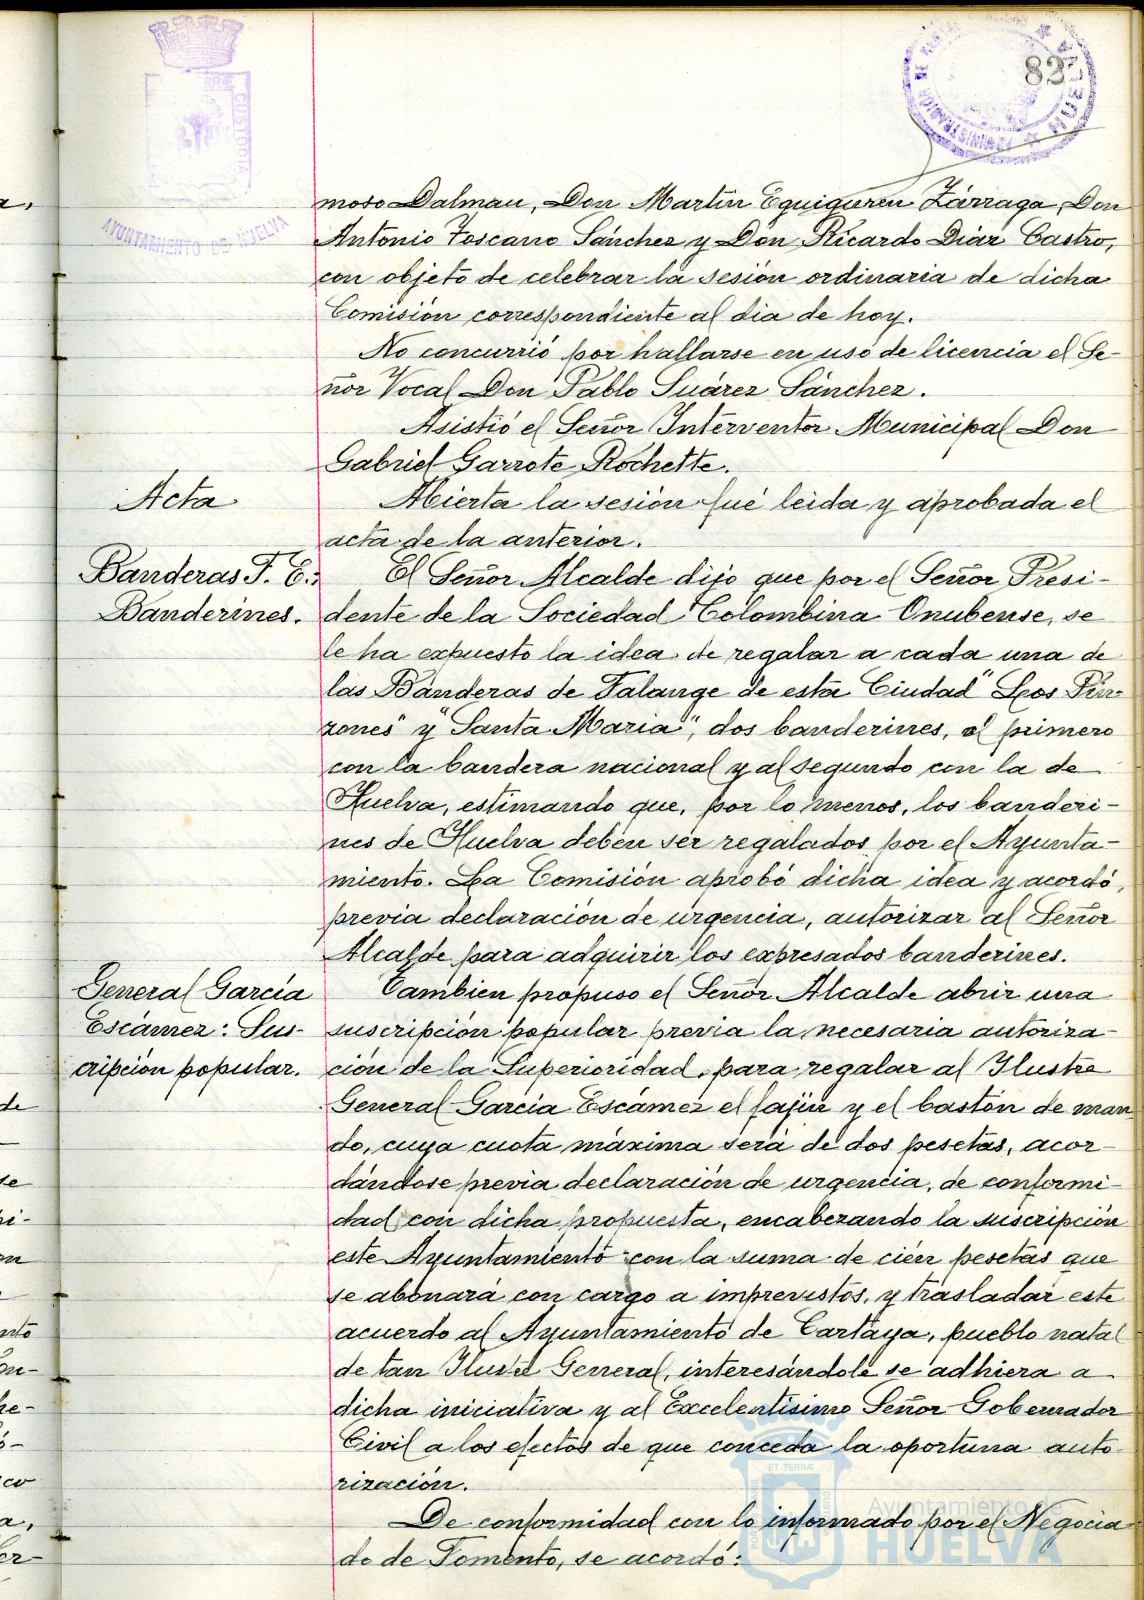 82
CUSTODIA
AYUNTAMIENTO DE HUELVA
ADMINISTRACION DE RENTAS
HUELVA
moso Dalmau, Don Martin Eguiguren Zárraga, Don
Antonio Toscano Sánchez y Don Ricardo Diaz Castro,
con objeto de celebrar la sesión ordinaria de dicha
Comisión correspondiente al dia de hoy.
No concurrió por hallarse en uso de licencia el Se-
ñor Vocal Don Pablo Suárez Sánchez.
Asistió el Señor Interventor Municipal Don
Gabriel Garrote Rochette.
Acta
Abierta la sesión fué leida y aprobada el
acta de la anterior.
Banderas F. E.:
Banderines.
El Señor Alcalde dijo que por el Señor Presi-
dente de la Sociedad Colombina Onubense, se
le ha expuesto la idea de regalar a cada una de
las Banderas de Falange de esta Ciudad "Los Pin-
zones" y "Santa Maria", dos banderines, el primero
con la bandera nacional y al segundo con la de
Huelva, estimando que, por lo menos, los banderi-
nes de Huelva deben ser regalados por el Ayunta-
miento. La Comisión aprobó dicha idea y acordó,
previa declaración de urgencia, autorizar al Señor
Alcalde para adquirir los expresados banderines.
General García
Escámez: Sus-
cripción popular.
Tambien propuso el Señor Alcalde abrir una
suscripción popular previa la necesaria autoriza-
ción de la Superioridad, para regalar al Ilustre
General García Escámez el fajin y el bastón de man
do, cuya cuota máxima será de dos pesetas, acor-
dándose previa declaración de urgencia, de conformi-
dad con dicha propuesta, encabezando la suscripción
este Ayuntamiento con la suma de cien pesetas que
se abonará con cargo a imprevistos, y trasladar este
acuerdo al Ayuntamiento de Cartaya, pueblo natal
de tan Ilustre General, interesándole se adhiera a
dicha iniciativa y al Excelentisimo Señor Gobernador
Civil a los efectos de que conceda la oportuna auto-
rización.
De conformidad con lo informado por el Negocia
do de Fomento, se acordó:
ET TERRÆ
Ayuntamiento de
HUELVA